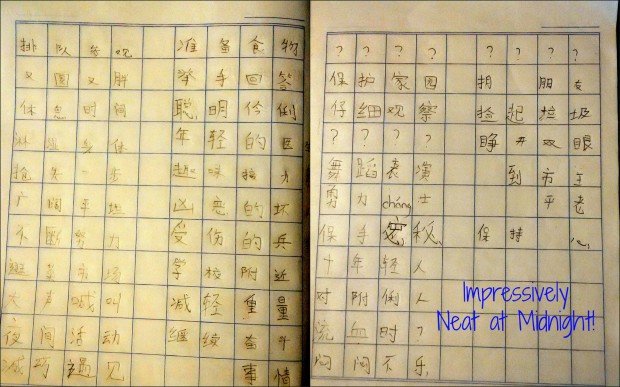 排队参观 准备食物
又圆又胖 举手回答
休息时间 聪明伶
身体 年轻的医
抢先一步 趣味
广阔平坦 凶恶的坏
不断努力 受伤的兵
市场 学校附近
大声喊叫 减轻重量
夜间活动 继续奋斗
巧遇见 事情
? ? ? ? ? ? ? ?
保护家园 朋友
仔细观察 捡起垃圾
? ? ? ? 睁开双眼
舞蹈表演 到市
力 cháng 士 平老
保手密秘 保持 心
十年轻人
对附俐人
流血时?
闷闷不乐
Impressively
Neat at Midnight!